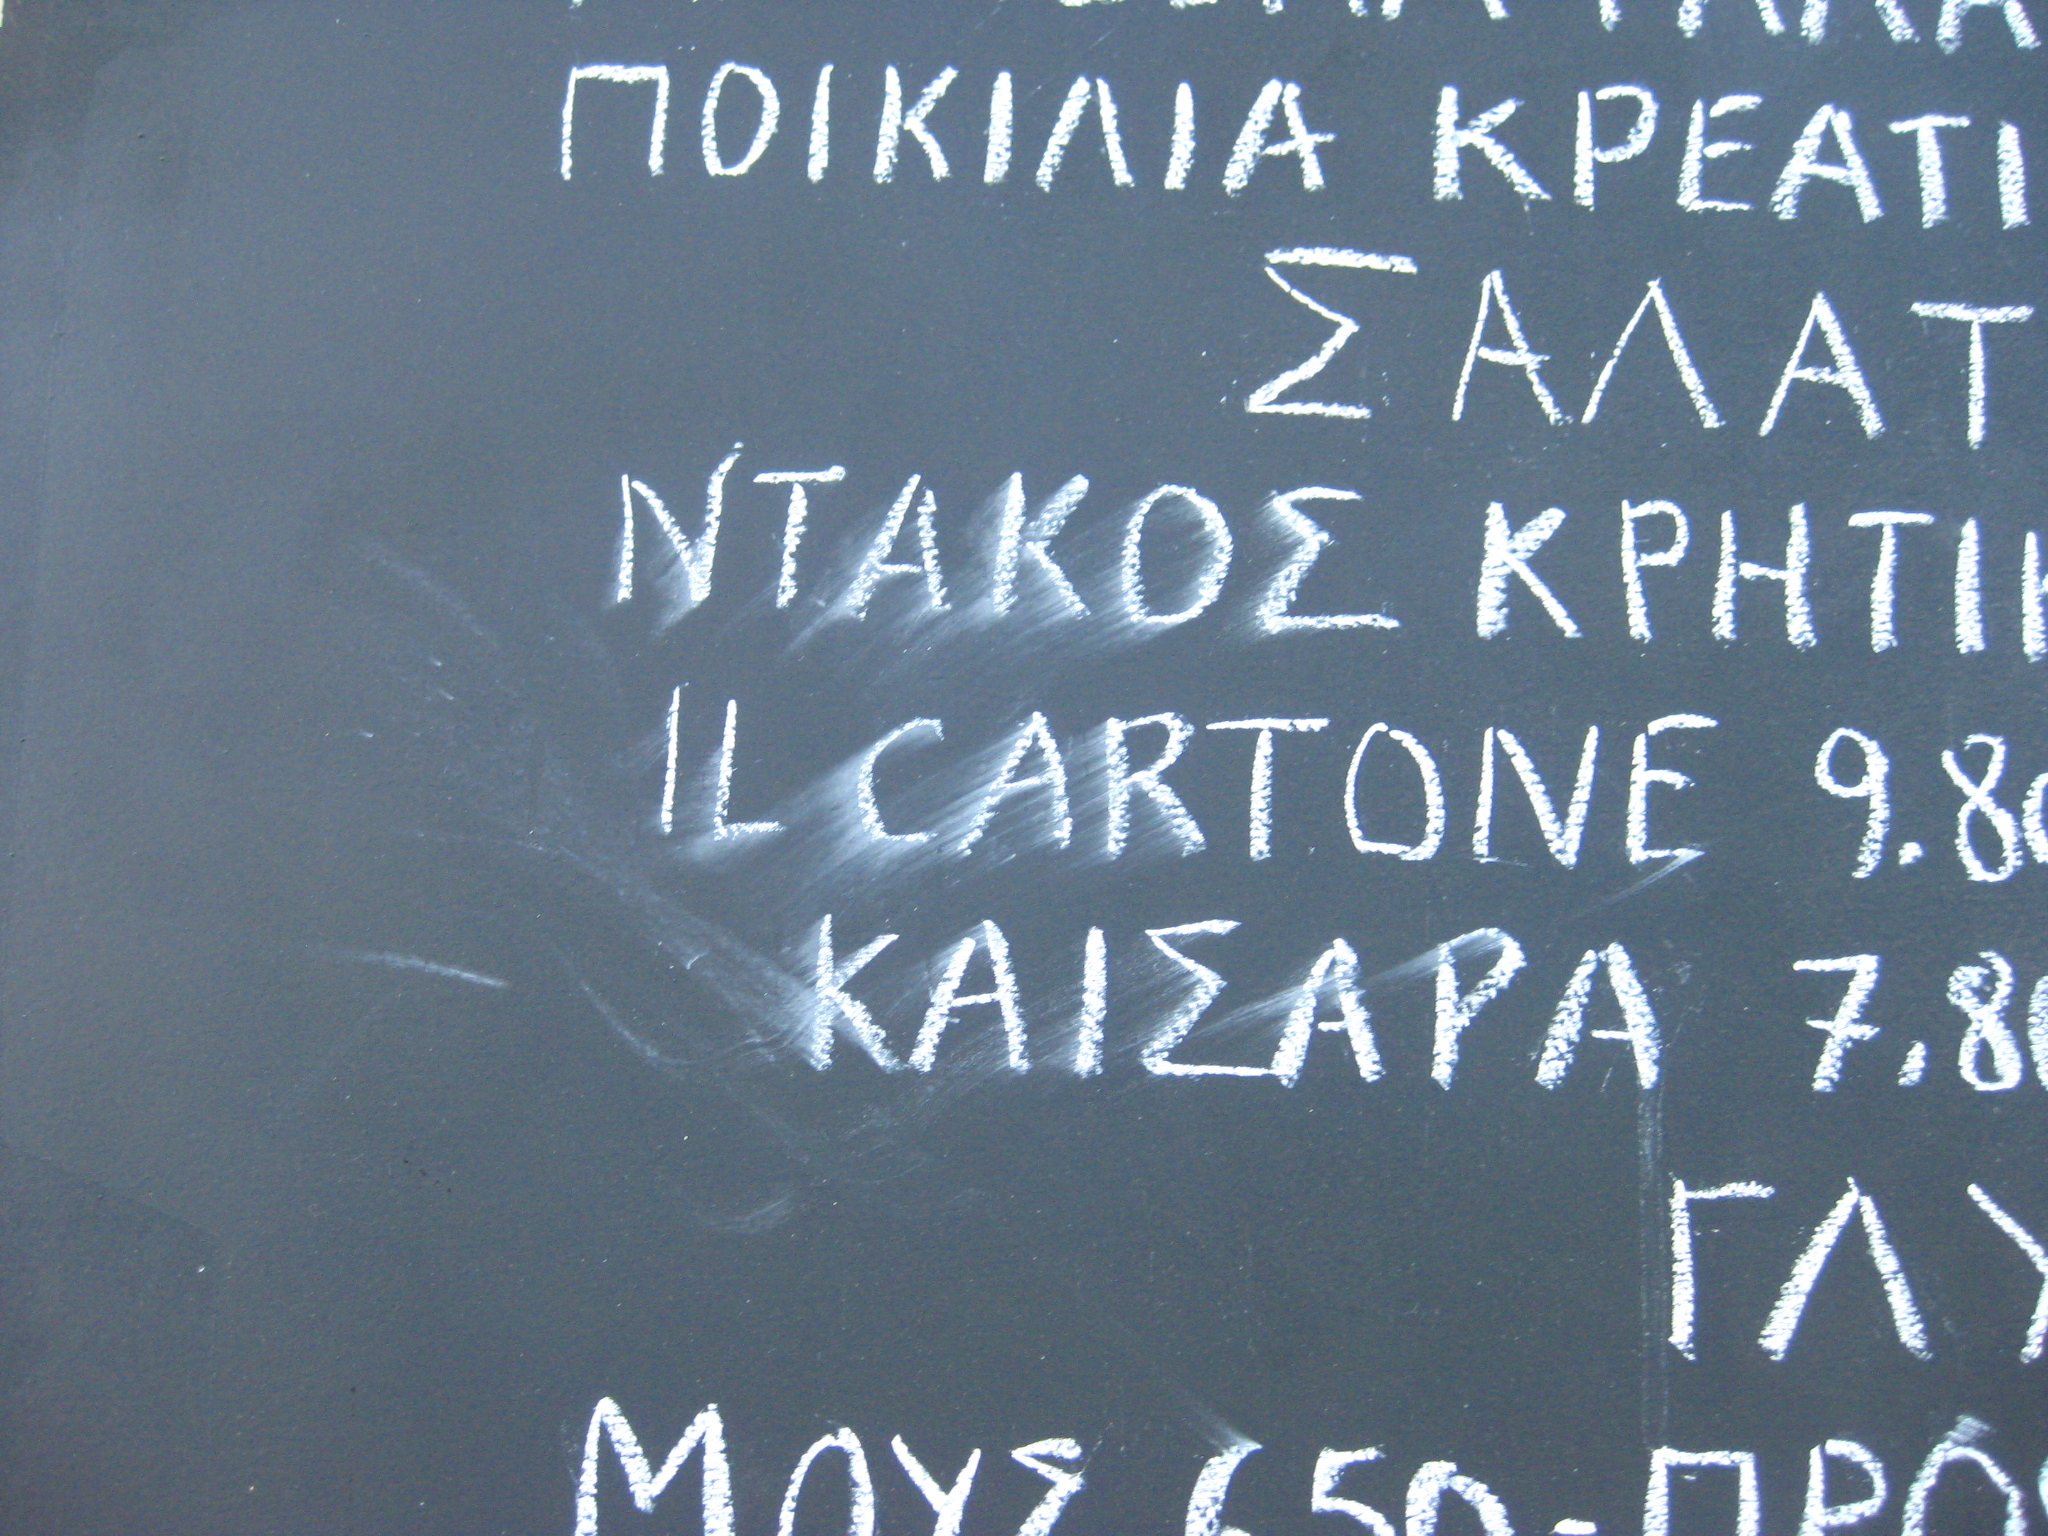 ΠΟΙΚΙΛΙΑ ΚΡΕΑΤΙ
ΣΑΛΑΤ
ΝΤΑΚΟΣ ΚΡΗΤΙΚ
IL CARTONE 9.80
ΚΑΙΣΑΡΑ 7.80
ΓΛΥ
ΜΟΥΣ 650-ΠΡΟ